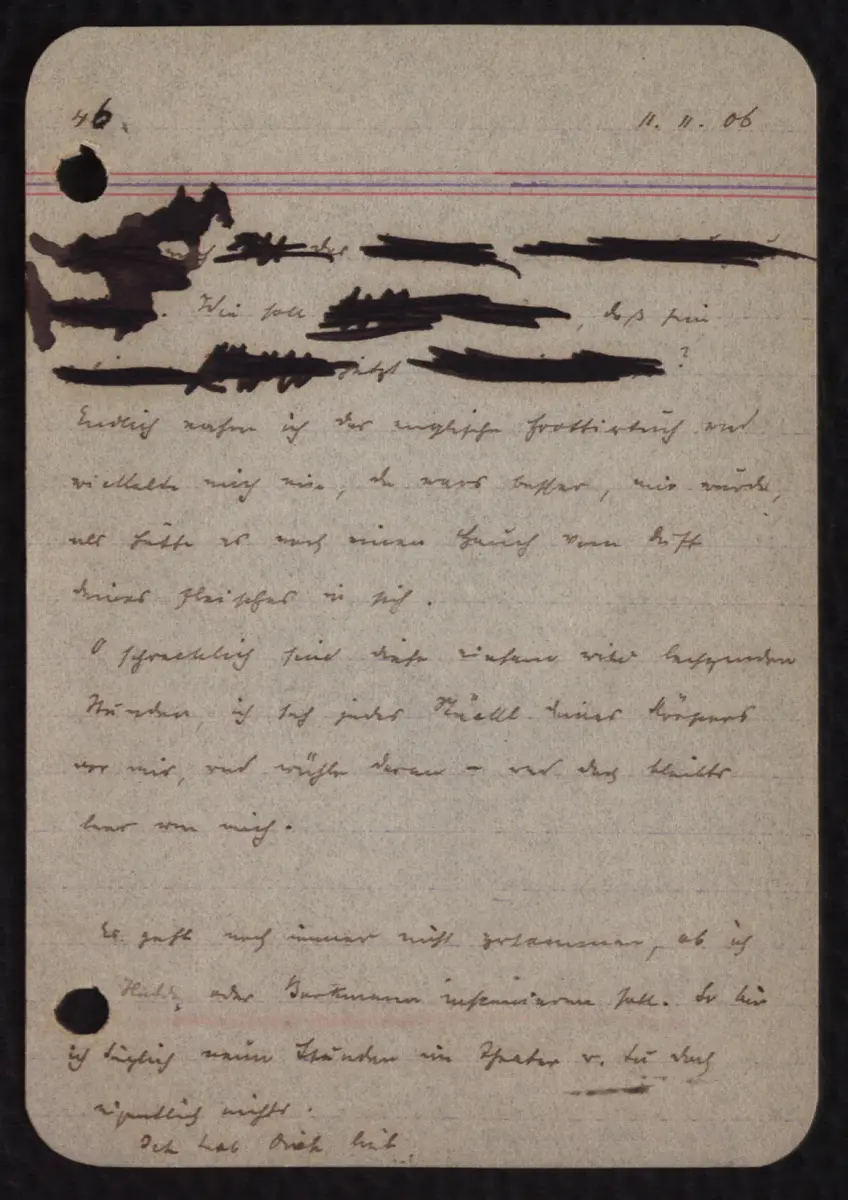 46. 11. 11. 06
nach das
. Wie soll , daß sein
jetzt ?
Endlich nahm ich das englische Frottirtuch und
wickelte mich ein, da wars besser, mir wurde,
als hätte es noch einen Hauch vom Duft
deines Fleisches in sich.
O schrecklich sind diese einsam wild lechzenden
Stunden, ich seh jedes Stückl deines Körpers
vor mir, und wühle daran – und doch bleibts
leer um mich.
Es geht noch immer nicht zusammen, ob ich
oder Borkmann inscenieren soll. So bin
ich täglich neun Stunden im Theater u. tu doch
eigentlich nichts.
Ich hab Dich lieb.